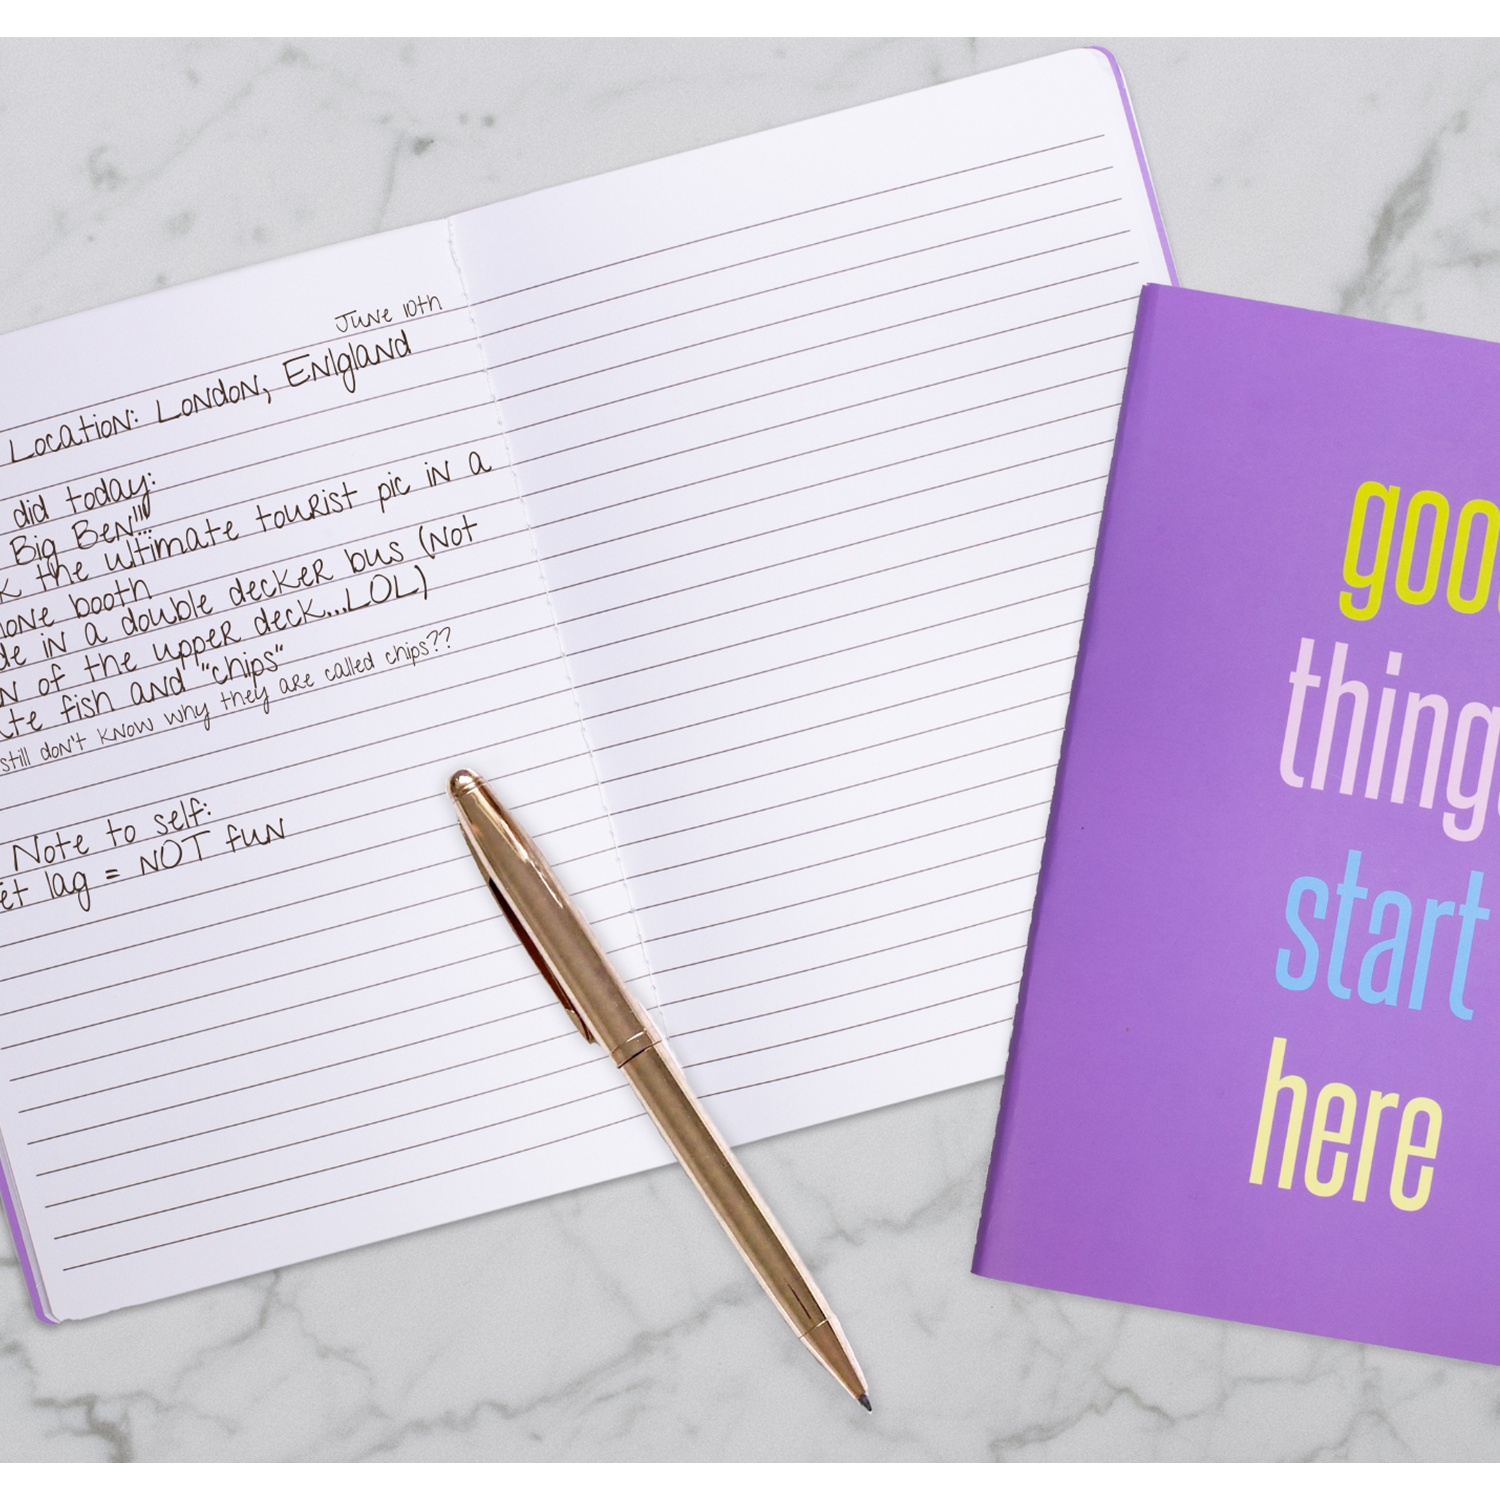 June 10th
Location: London, Enlgland
did today:
Big Ben!!!
the ultimate tourist pic in a
booth
in a double decker bus (Not
of the upper deck...LOL)
fish and "chips"
still don't know why they are called chips??
Note to self:
lag = NOT fun
good
things
start
here